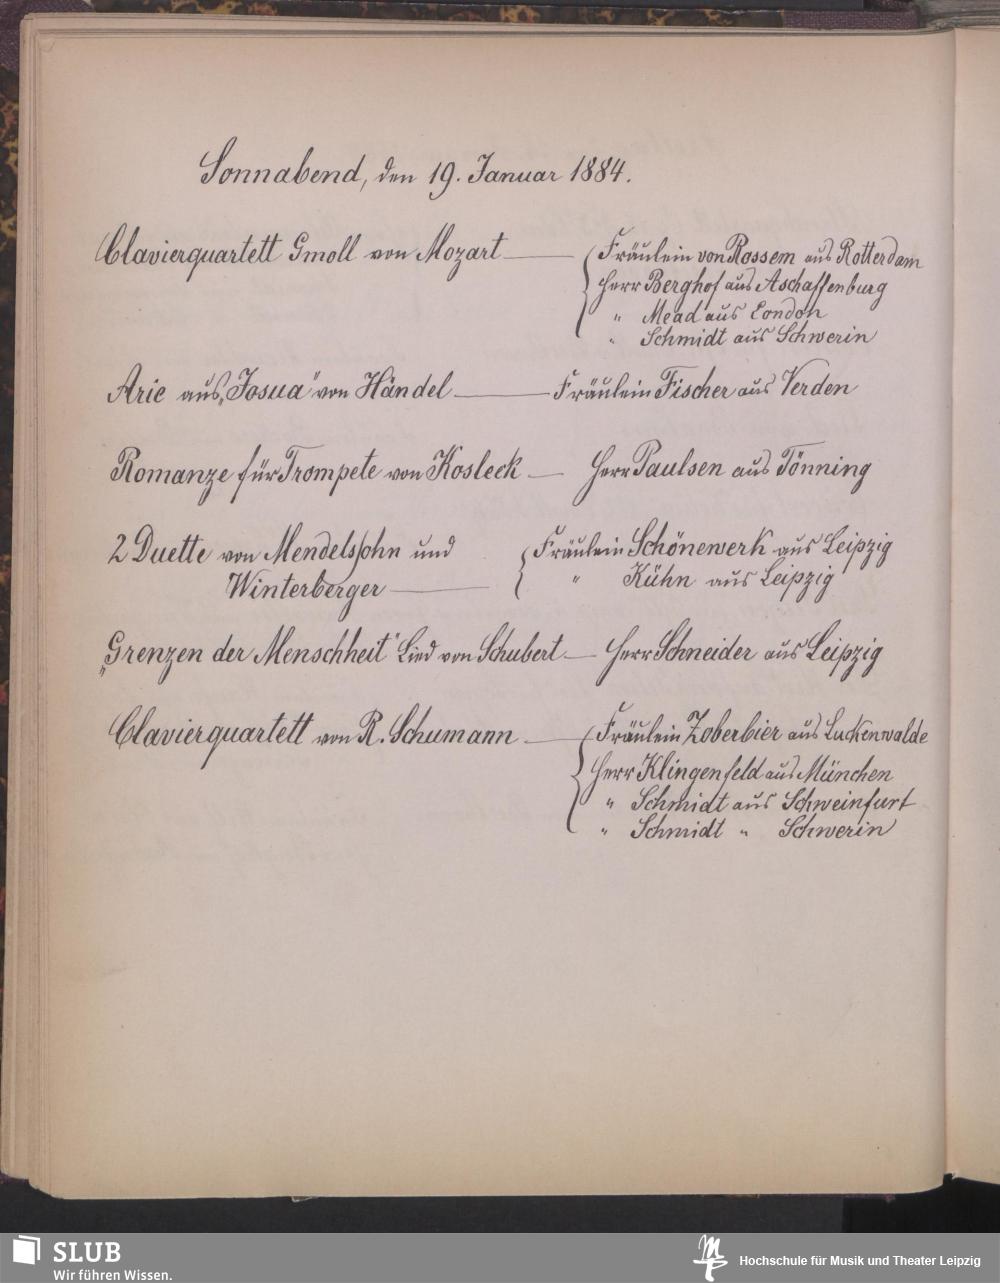 Sonnabend, den 19. Januar 1884.
Clavierquartett Gmoll von Mozart — Fräulein von Rossem aus Rotterdam
Herr Berghof aus Aschaffenburg
" Mead aus London
" Schmidt aus Schwerin
Arie aus „Josua" von Händel — Fräulein Fischer aus Verden
Romanze für Trompete von Kosleck — Herr Paulsen aus Tönning
2 Duette von Mendelssohn und Fräulein Schönewerk aus Leipzig
Winterberger — " Kühn aus Leipzig
„Grenzen der Menschheit" Lied von Schubert — Herr Schneider aus Leipzig
Clavierquartett von R. Schumann — Fräulein Zoberbier aus Luckenwalde
Herr Klingenfeld aus München
" Schmidt aus Schweinfurt
" Schmidt " Schwerin
SLUB
Wir führen Wissen.
Hochschule für Musik und Theater Leipzig